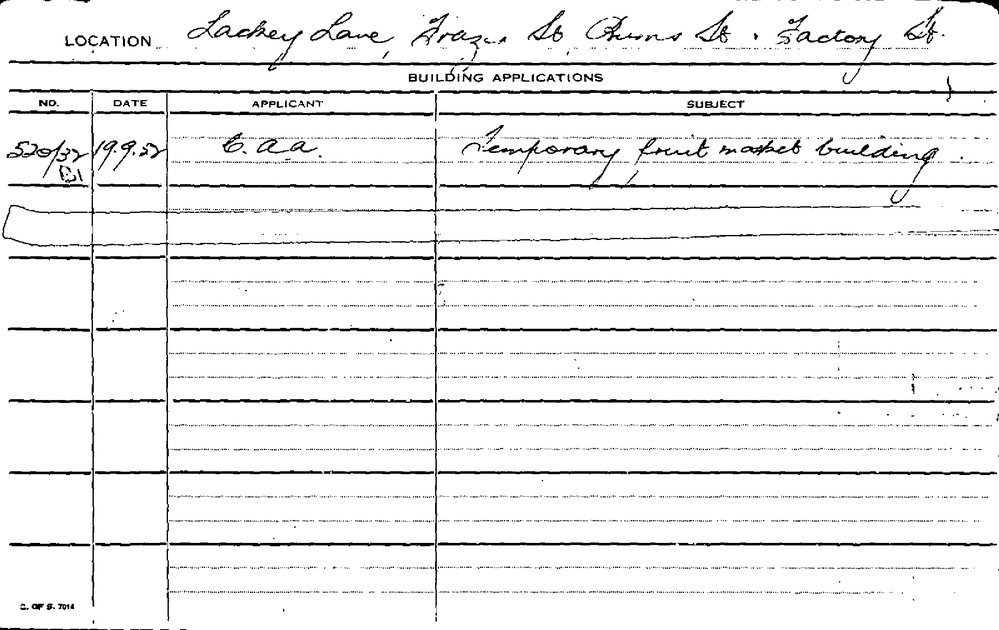 LOCATION Lackey Lane, St, St. Factory St.
BUILDING APPLICATIONS
NO. DATE APPLICANT SUBJECT
520/32 19.9.32 C.a.a. Temporary fruit market building.
C. OF S. 7014